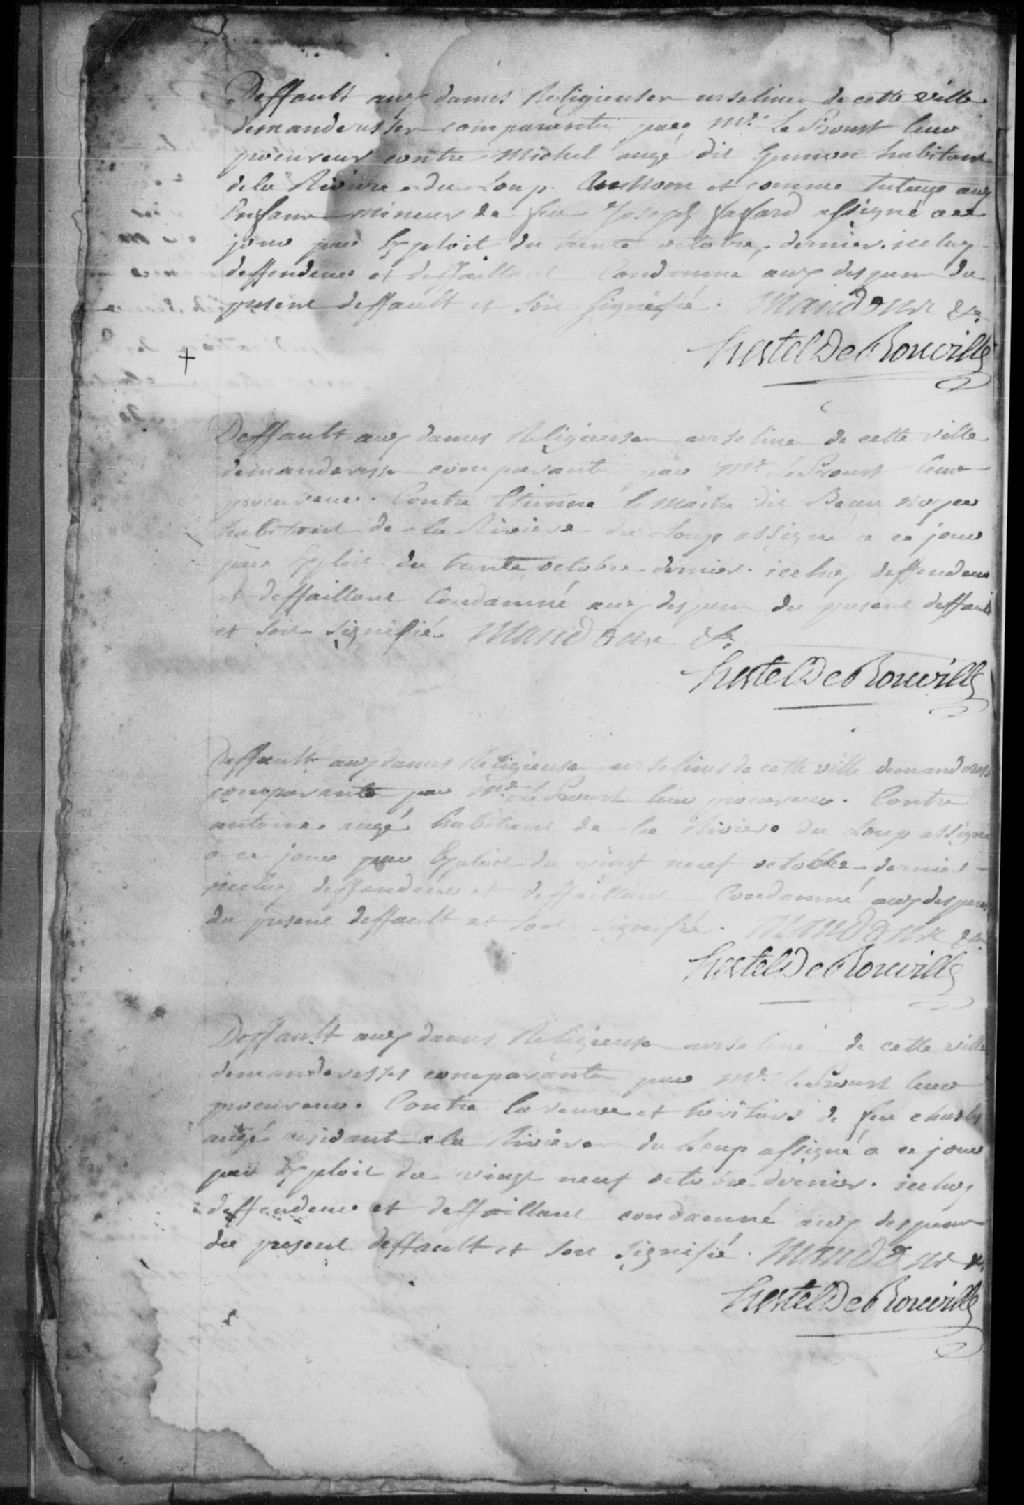 Deffault aux dames Religieuses urselines de cette ville
demanderesses comparantes par Me. le Proust leur
procureur contre Michel augé dit habitant
de la Riviere du Loup au nom et comme aux
Enfans mineurs de feu Joseph assigné a ce
jour par Exploit du trente octobre dernier. iceluy
deffendeur et deffaillant Condamné aux despens du
present deffault et soit signiffié. Mandons &a
hertel De Rouville
Deffault aux dames Religieuses urselines de cette ville
demanderesses comparantes par Me. le Proust leur
procureur. Contre Etienne le Maitre dit Beau
habitant de la Riviere du Loup assigné a ce jour
par Exploit du trente octobre dernier. iceluy deffendeur
et deffaillant Condamné aux despens du present deffault
et soit signifié Mandons &a
hertel De Rouville
Deffault aux dames Religieuses urselines de cette ville demanderesses
comparantes par Me. le Proust leur procureur. Contre
antoine augé habitant de la Riviere du Loup assigné
a ce jour par Exploit du vingt neuf octobre dernier
iceluy deffendeur et deffaillant Condamné aux despens
du present deffault et soit signifié. Mandons &a
hertel De Rouville
Deffault aux dames Religieuses urselines de cette ville
demanderesses comparantes par Me. le Proust leur
procureur. Contre la veuve et héritiers de feu charles
augé residante a la Riviere du Loup assigné a ce jour
par Exploit du vingt neuf octobre dernier. iceluy
deffendeur et deffaillant condamné aux despens
du present deffault et soit signifié. Mandons &a
hertel De Rouville